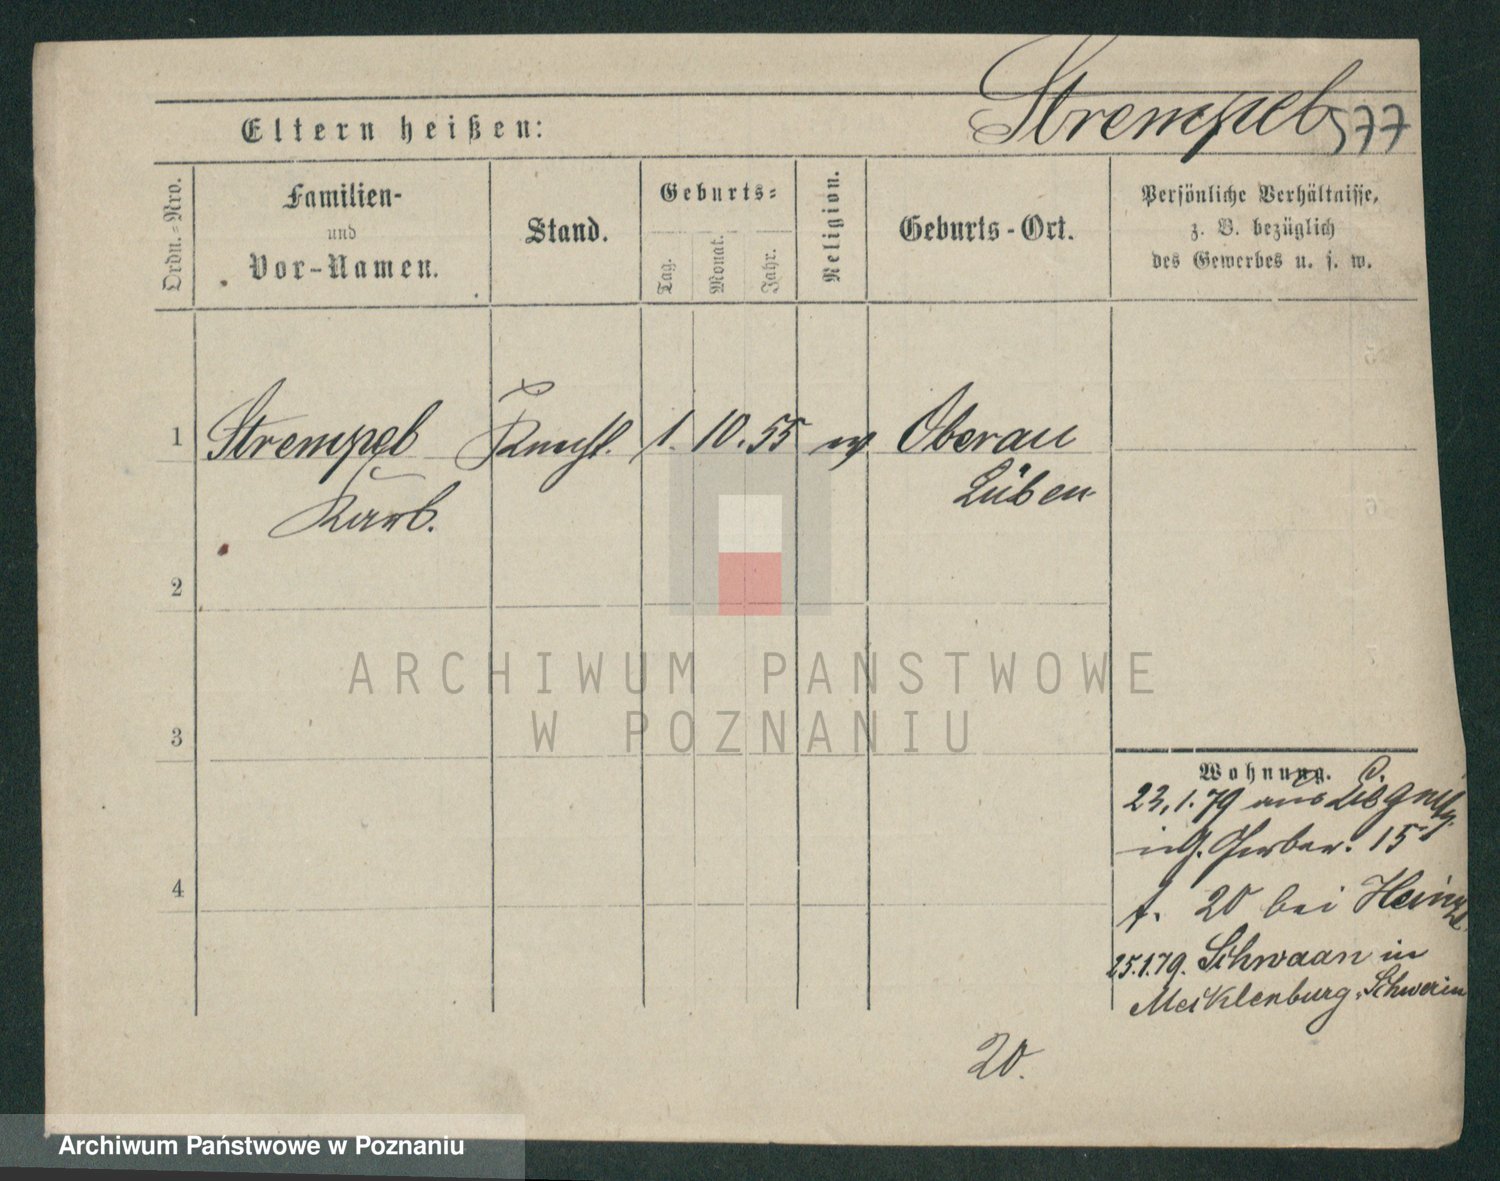 Strempel 577
Eltern heißen:
Ordn.-Nro.
Familien-
und
Vor-Namen.
Stand.
Geburts-
Tag.
Monat.
Jahr.
Religion.
Geburts-Ort.
Persönliche Verhältnisse,
z. B. bezüglich
des Gewerbes u. s. w.
1 Strempel 1. 10. 55 Oberau
Karl. Lüben
2
3
4
Wohnung.
23.1.79 aus Liegnitz
Gerber. 15
f. 20 bei Heinze
25.1.79. Schwaan in
Mecklenburg-Schwerin
20.
ARCHIWUM PAŃSTWOWE
W POZNANIU
Archiwum Państwowe w Poznaniu